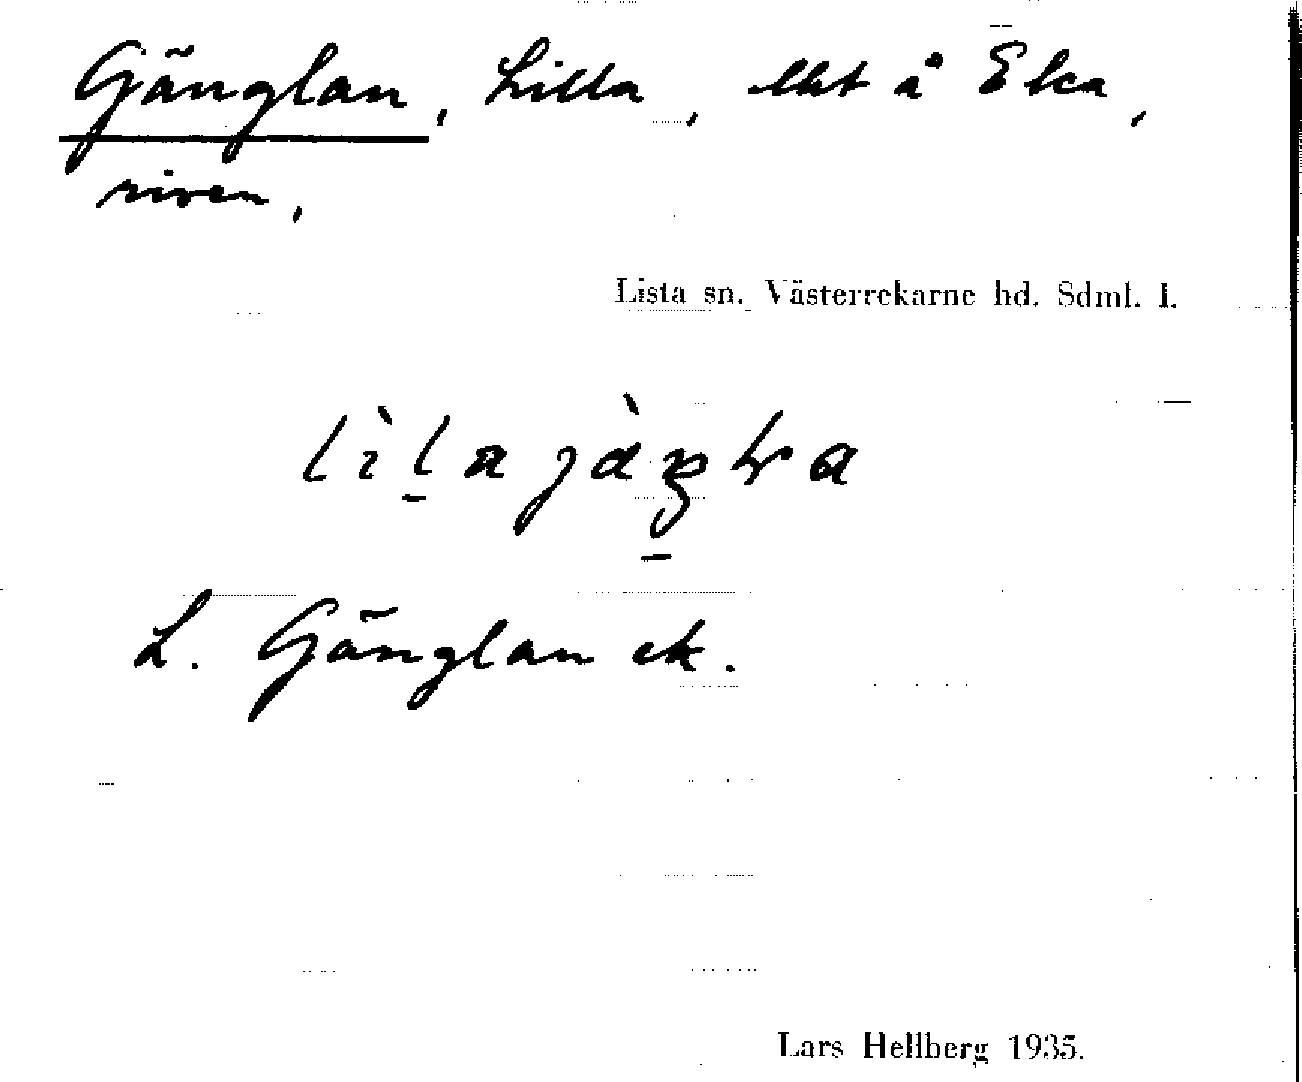 Gänglan, Lilla, lht å Eka,
riven.
Lista sn. Västerrekarne hd. Sdml. l.
L. Gänglan ek.
Lars Hellberg 1935.